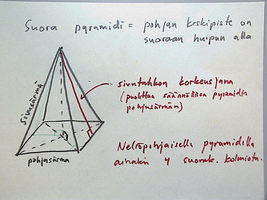 Suora pyramidi = pohjan keskipiste on
suoraan huipun alla
sivusärmä
sivutahkon korkeusjana
(puolittaa säännöllisen pyramidin
pohjasärmän)
pohjasärmä
Neliöpohjaisella pyramidilla
ainakin 4 suorak. kolmiota.